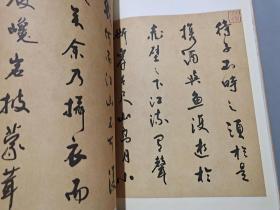 待子不時之須於是
攜酒與魚復遊於
赤壁之下江流有聲
斷岸千尺山高月小
江山不可復
矣余乃攝衣而
巉岩披蒙茸